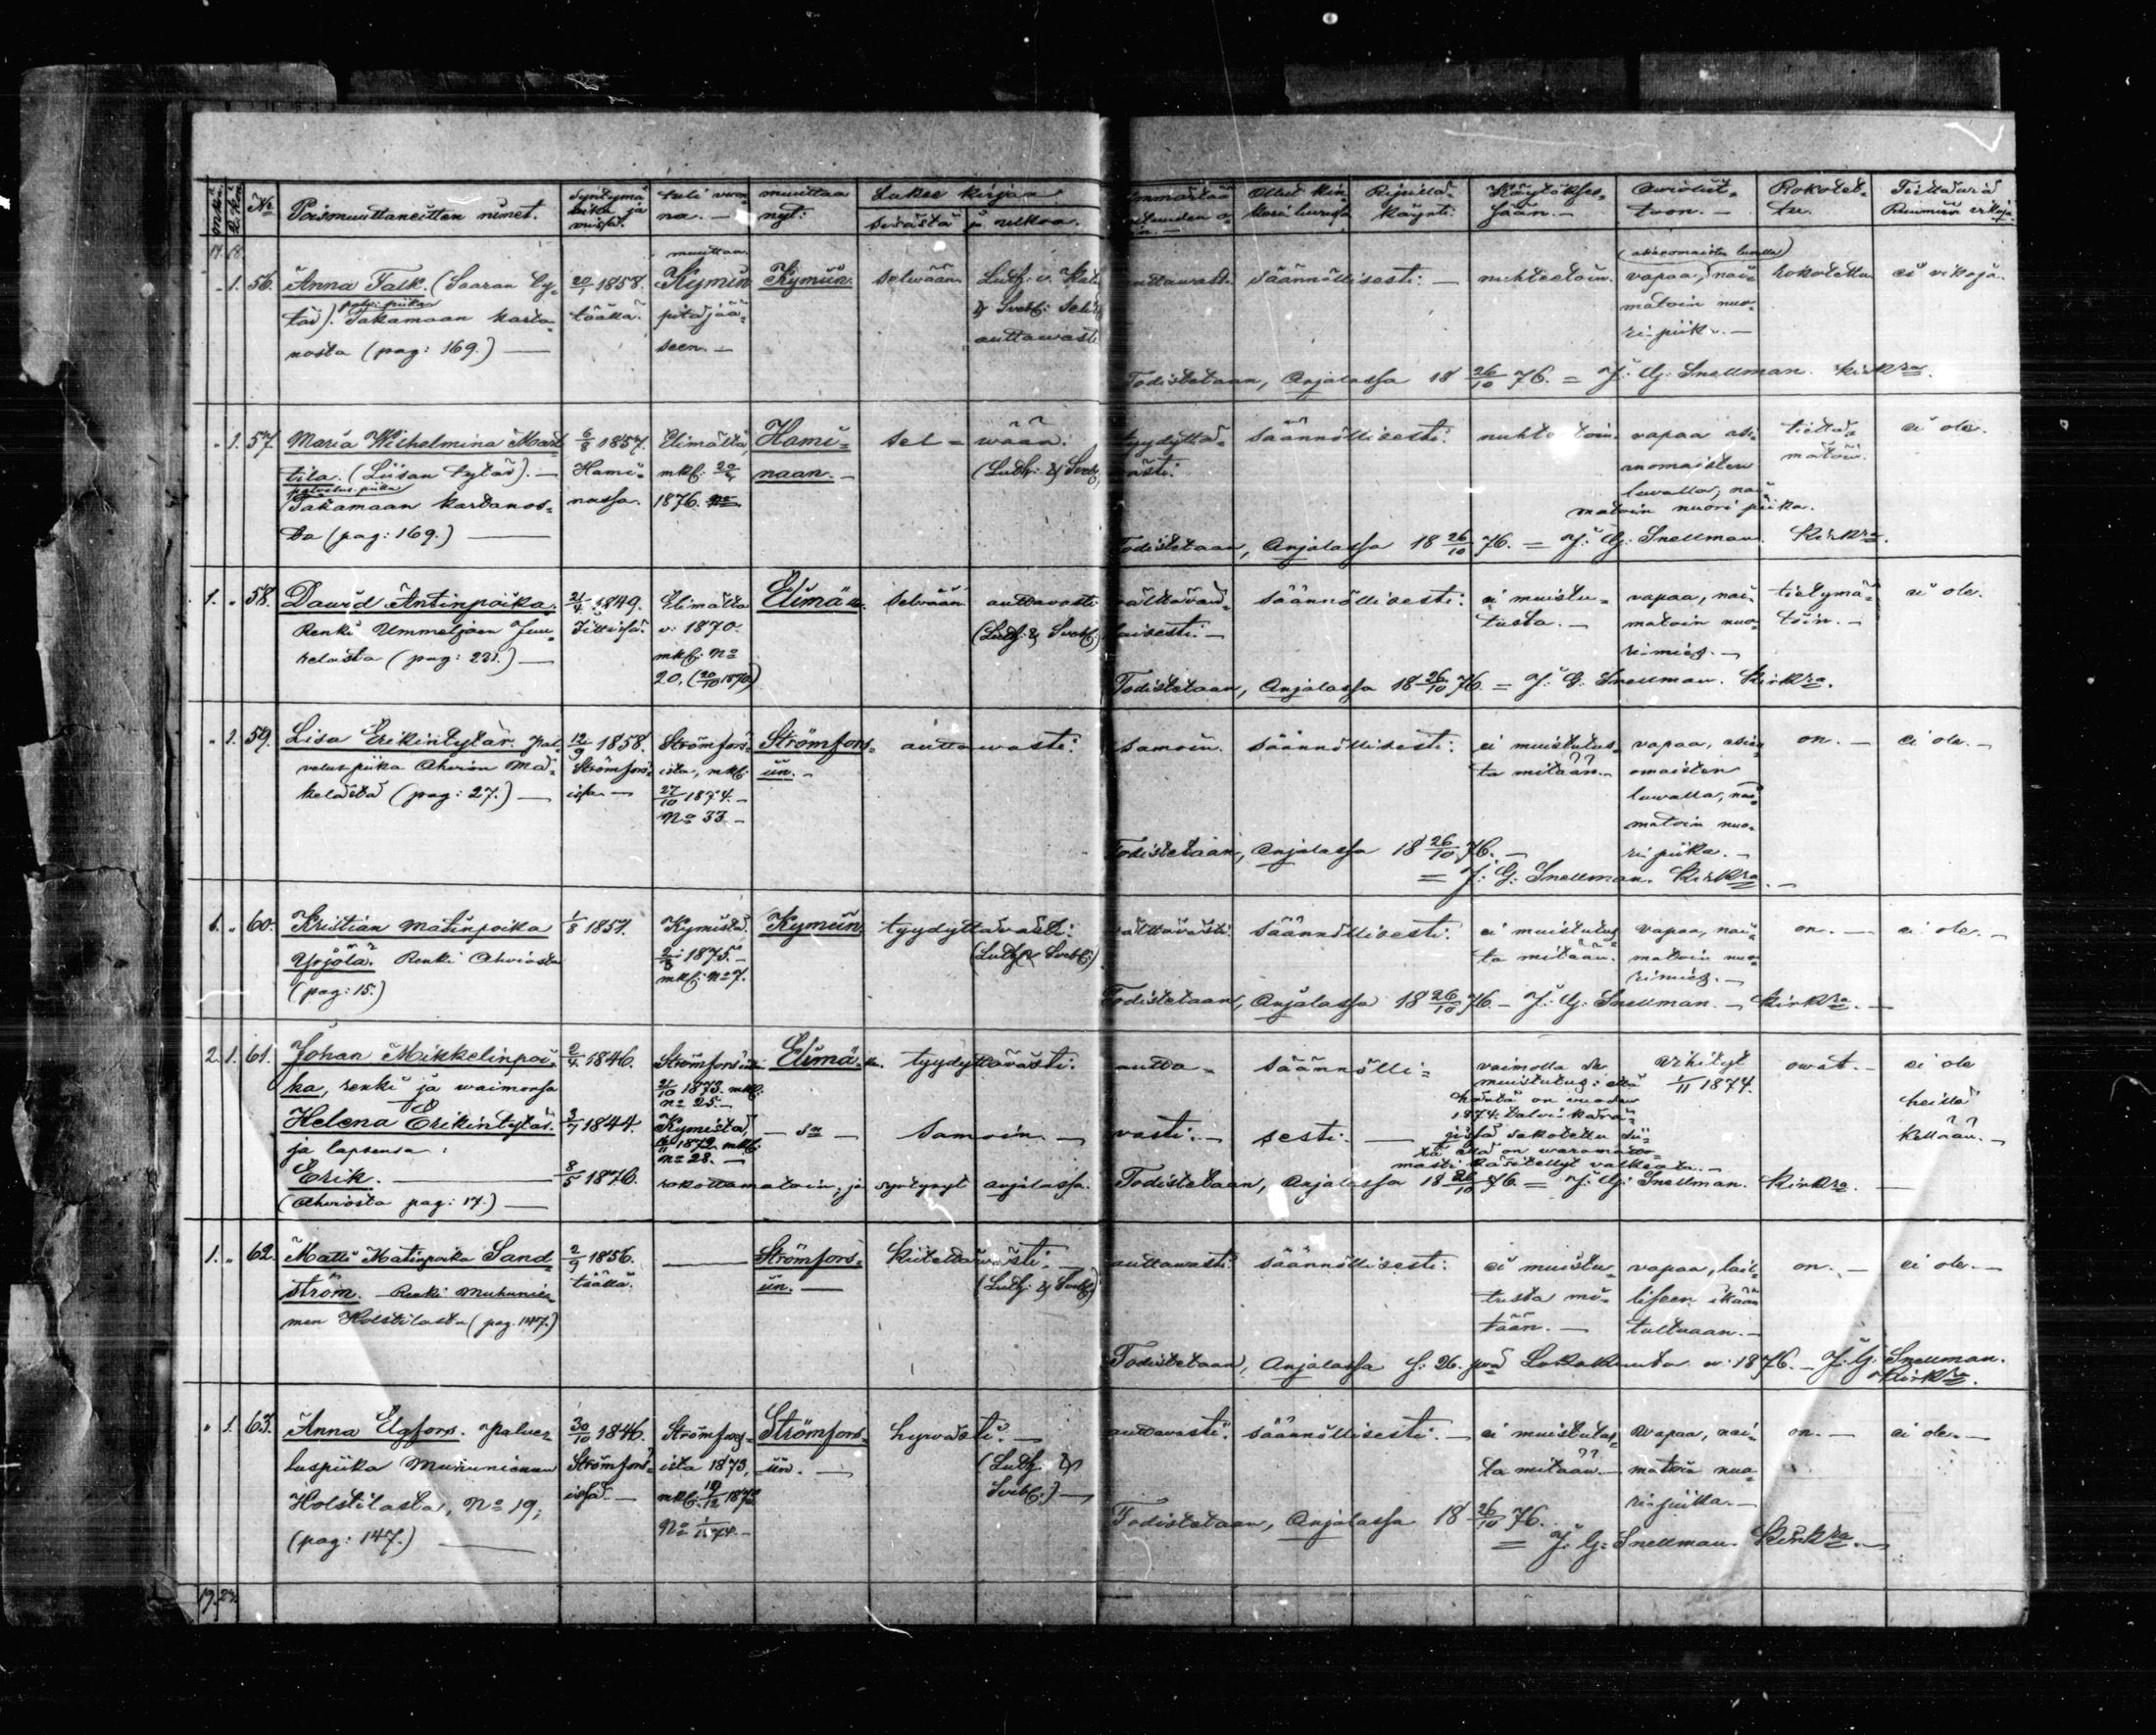 Poismuuttaneitten nimet.
Syntymä aika ja
tuli vuonna. —
muuttaa nyt:
Lukee kirjaa
sisästä ja ulkoa.
Ollut kinkeri luvussa
Ripillä käynti:
Käytöksessään. —
Aviosäätyyn. —
Rokotettu.
No
14. 18.
" 1. 56. Anna Falk. (Saaran ty-
tär). palv: piika Takamaan karta-
nosta (pag: 169.) —
20/1 1858.
täällä.
muuttaa
Kymin
pitäjää-
seen. —
Kymiin.
selvään
Luth: v. Kat:
& Svebf: Seli
auttavasti
auttavasti. säännöllisesti: — nuhteetoin.
(asianomaisten luvalla)
vapaa, nai-
matoin nuo-
ri piika. —
rokotettu
ei vikoja.
Todistetaan, Anjalassa 18 26/10 76. = J: G: Snellman. Kirkra.
" 1. 57. Maria Wilhelmina Mart-
tila. (Liisan tytär). —
palvelus piika
Takamaan kartanos-
ta (pag: 169.) —
6/8 1857.
Hami-
nassa.
Elimältä,
mkf:
1876. No
Hami-
naan. —
sel- vään.
(Luth: & Svebf:
tyydyttä-
västi:
säännöllisesti:
nuhtetoin.
vapaa asi-
anomaisten
luvalla, nai-
matoin nuori piika.
tiettä-
mätöin.
ei ole.
Todistetaan, Anjalassa 18 26/10 76. = J: G: Snellman. Kirkra.
1. " 58. David Antinpoika.
Renki Ummeljoen Juu-
kelasta (pag: 221.) —
21/4 1849.
Iittissä.
Elimältä
v: 1870.
mkf: No
20. (20/10 1870)
Elimälle.
selvään auttavasti
(Luth: & Svebf:)
välttävän-
laisesti: —
säännöllisesti:
ei muistu-
tusta. —
vapaa, nai-
matoin nuo-
rimies. —
tietymä-
töin. —
ei ole.
Todistetaan, Anjalassa 18 26/10 76. = J: G: Snellman. Kirkra.
" 1. 59. Lisa Erikintytär. pal-
velus piika Ahvion Mä-
kelästä (pag: 27.) —
12/9 1858.
Strömfors-
issa. —
Strömfors-
ista, mkf:
27/10 1874. —
No 33. —
Strömfors-
iin. —
auttavasti:
samoin. säännöllisesti:
ei muistutus-
ta mitään. —
vapaa, asian
omaisten
luvalla, nai-
matoin nuo-
ri piika. —
on. —
ei ole. —
Todistetaan, Anjalassa 18 26/10 76. —
= J: G: Snellman. Kirkra. —
1. " 60. Kristian Matinpoika
Yrjölä. Renki Ahviosta
(pag: 15.)
1/8 1857.
Kymistä.
1875. —
mkf: No 7.
Kymiin.
tyydyttävästi:
(Luth: & Svebf:)
välttävästi: säännöllisesti:
ei muistutus-
ta mitään.
vapaa, nai-
matoin nuo-
rimies. —
on. —
ei ole. —
Todistetaan, Anjalassa 18 26/10 76 — J: G: Snellman. — Kirkra. —
2. 1. 61. Johan Mikkelinpoi-
ka, renki ja vaimonsa
Helena Erikintytär.
ja lapsensa:
Erik. —
(Ahviosta pag: 17.) —
2/4 1846.
3/7 1844.
8/5 1876.
Strömforsista
21/10 1873. mkf:
No 25. —
Kymistä,
1872. mkf:
No 28. —
Elimälle.
tyydyttävästi.
samoin. —
rokottamatoin, ja syntynyt Anjalassa.
autta-
vasti: —
säännölli-
sesti: —
vaimolla se
muistutus: että
on vuoden
1874: talvi-kärä-
jissä sakotettu sii-
tä että on varomatto-
masti käsitellyt valkeata. —
Vihityt
1/11 1874.
ovat. —
ei ole
heillä
kellään. —
Todistetaan, Anjalassa 18 26/10 76. = J: G: Snellman. Kirkra. —
1. " 62. Matti Matinpoika Sand-
ström. — Renki Muhunie-
men Holstilasta (pag. 147.)
2/9 1856.
täällä.
Strömfors-
iin. —
kiitettävästi. —
(Luth: & Svebf:)
auttavasti: säännöllisesti:
ei muistu-
tusta mi-
tään. —
vapaa, lail-
liseen ikään
tultuaan. —
on. —
ei ole. —
Todistetaan, Anjalassa s: 26. pnä Lokakuuta v: 1876. — J: G: Snellman.
Kirkra.
" 1. 63. Anna Elgfors. palve-
luspiika Muhuniemen
Holstilasta, No 19;
(pag: 147.) —
30/10 1846.
Strömfors-
issa. —
Strömfors-
ista 1873,
mkf:
Strömfors-
iin. —
hyvästi: —
(Luth: &
Svebf:) —
auttavasti: säännöllisesti: —
ei muistutus-
ta mitään. —
Vapaa, nai-
matoin nuo-
ri piika. —
on. —
ei ole. —
Todistetaan, Anjalassa 18 26/10 76.
= J: G: Snellman. Kirkra. —
19. 24.